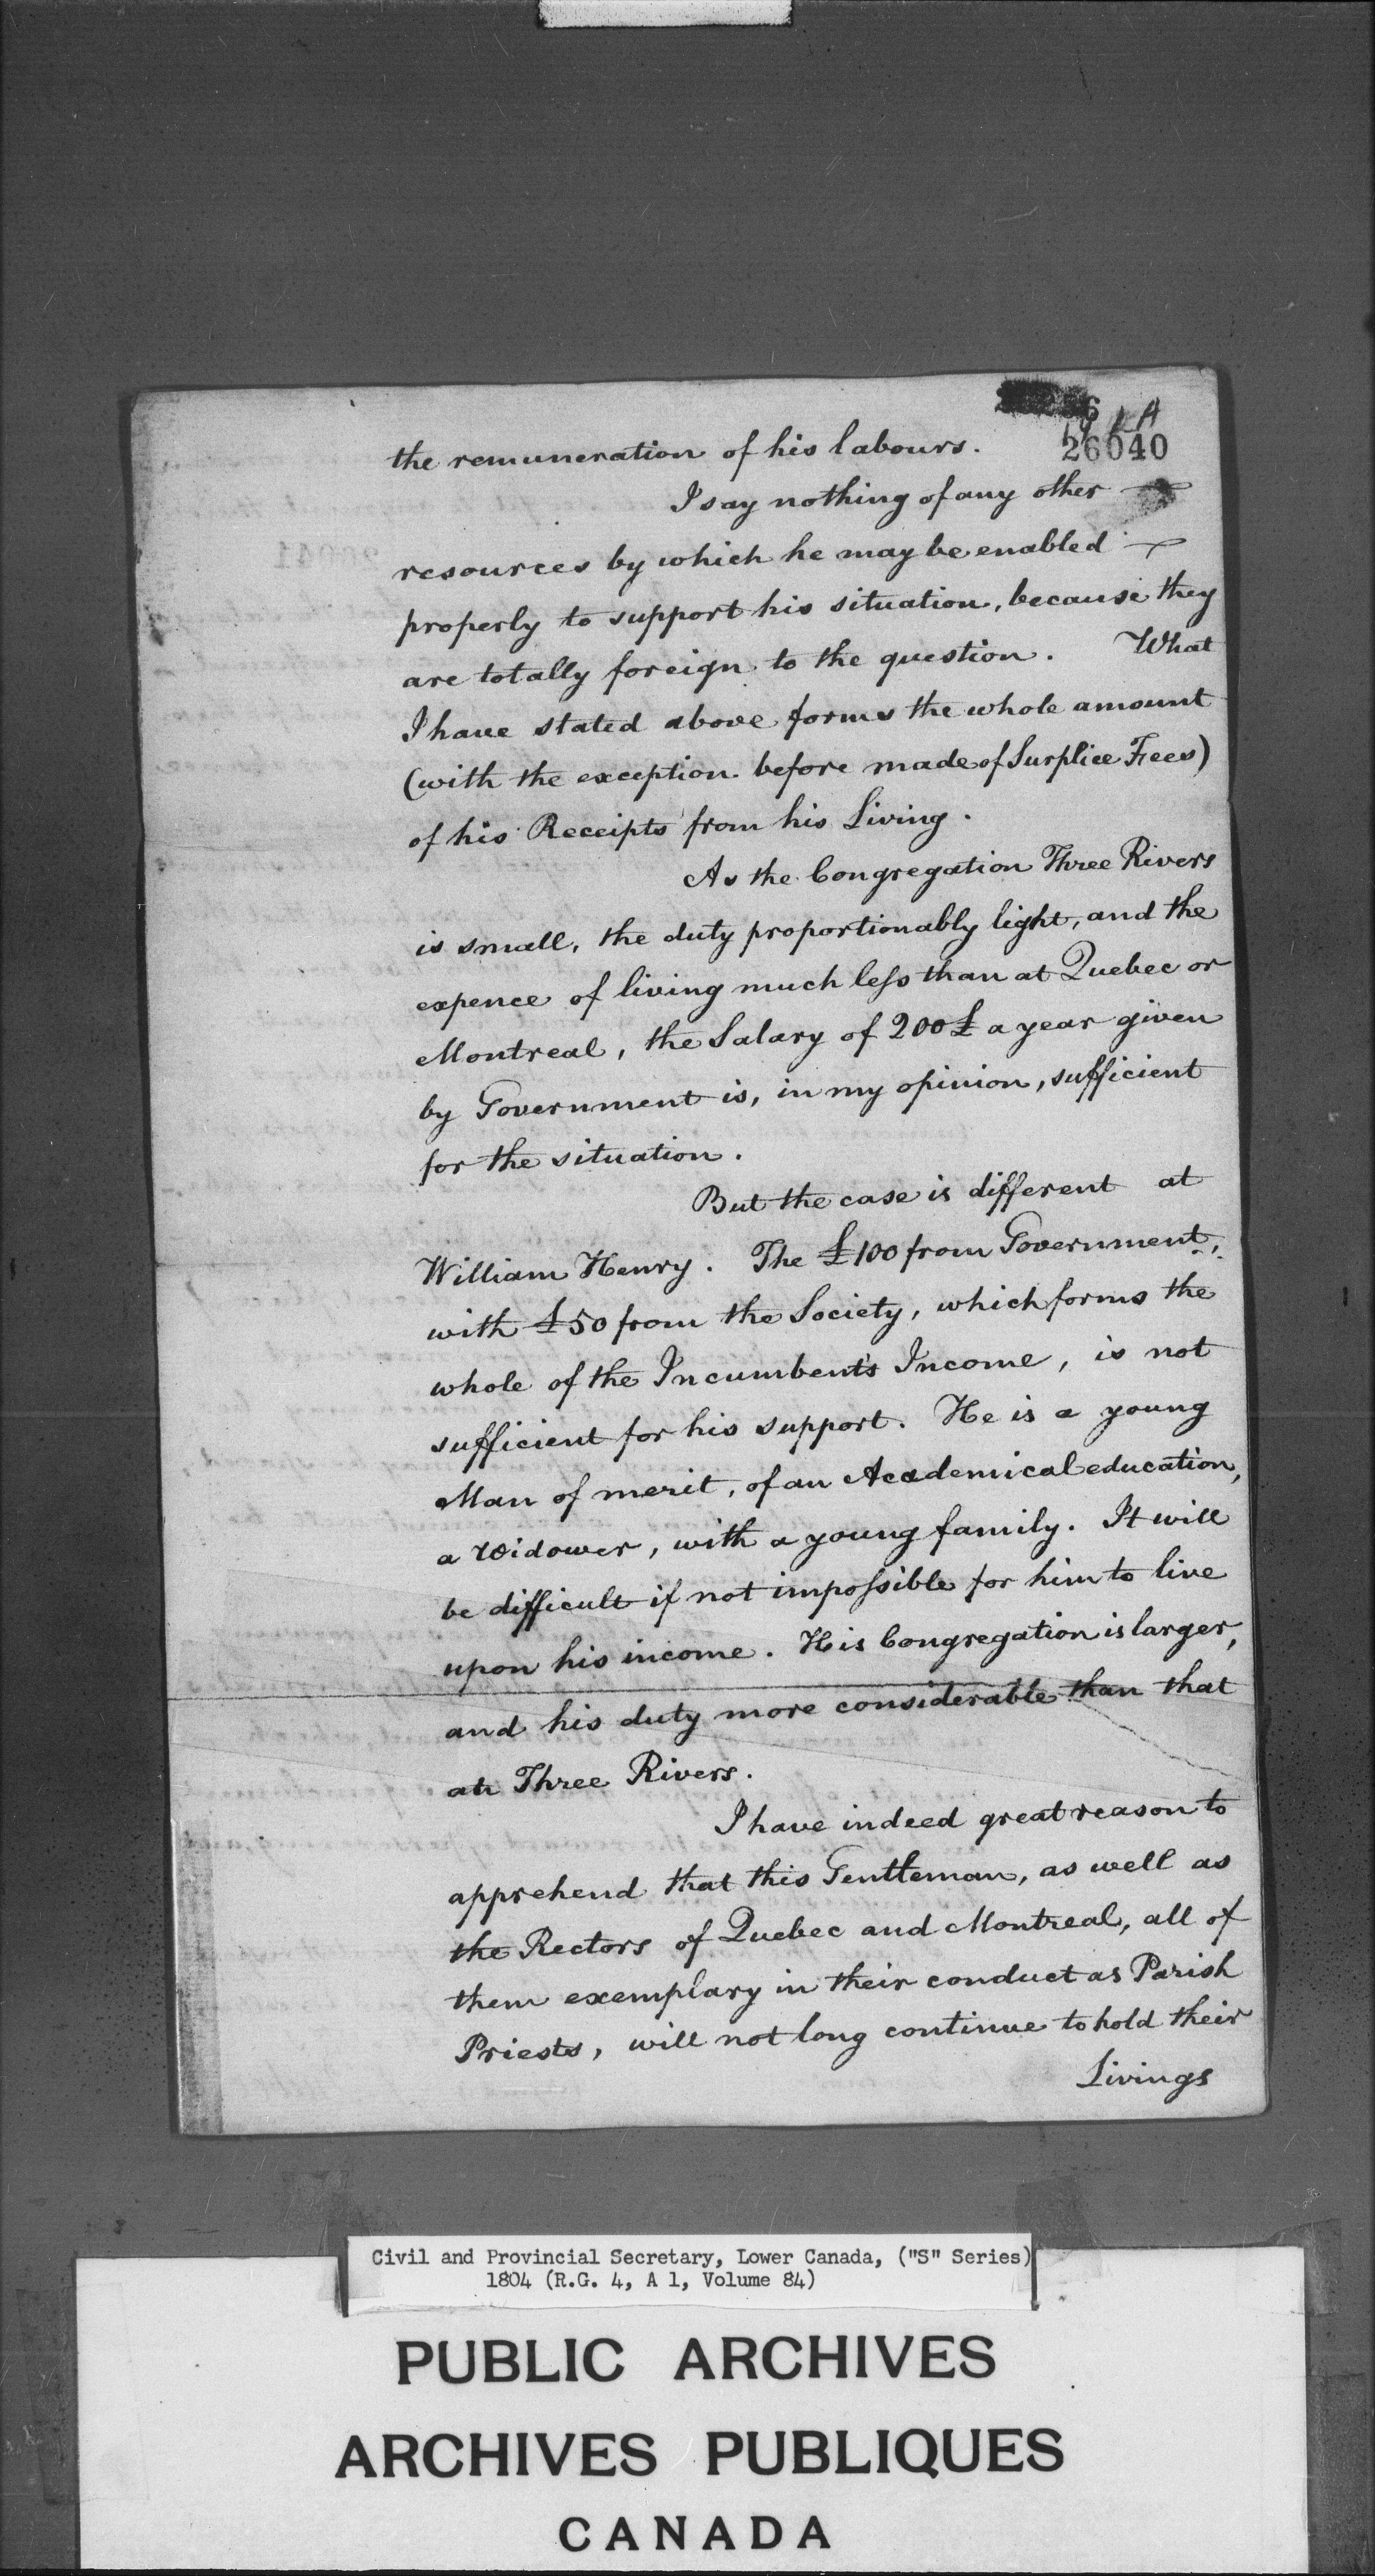 the remuneration of his labours.
26040
I say nothing of any other
resources by which he may be enabled
properly to support his situation, because they
are totally foreign to the question. What
I have stated above forms the whole amount
(with the exception before made of Surplice Fees)
of his Receipts from his Living.
As the Congregation Three Rivers
is small, the duty proportionably light, and the
expence of living much less than at Quebec or
Montreal, the Salary of 200£ a year given
by Government is, in my opinion, sufficient
for the situation.
But the case is different at
William Henry. The £100 from Government,
with £50 from the Society, which forms the
whole of the Incumbent's Income, is not
sufficient for his support. He is a young
Man of merit, of an Academical education,
a widower, with a young family. It will
be difficult if not impossible for him to live
upon his income. His Congregation is larger,
and his duty more considerable than that
at Three Rivers.
I have indeed great reason to
apprehend that this Gentleman, as well as
the Rectors of Quebec and Montreal, all of
them exemplary in their conduct as Parish
Priests, will not long continue to hold their
Livings
Civil and Provincial Secretary, Lower Canada, ("S" Series)
1804 (R.G. 4, A 1, Volume 84)
PUBLIC ARCHIVES
ARCHIVES PUBLIQUES
CANADA